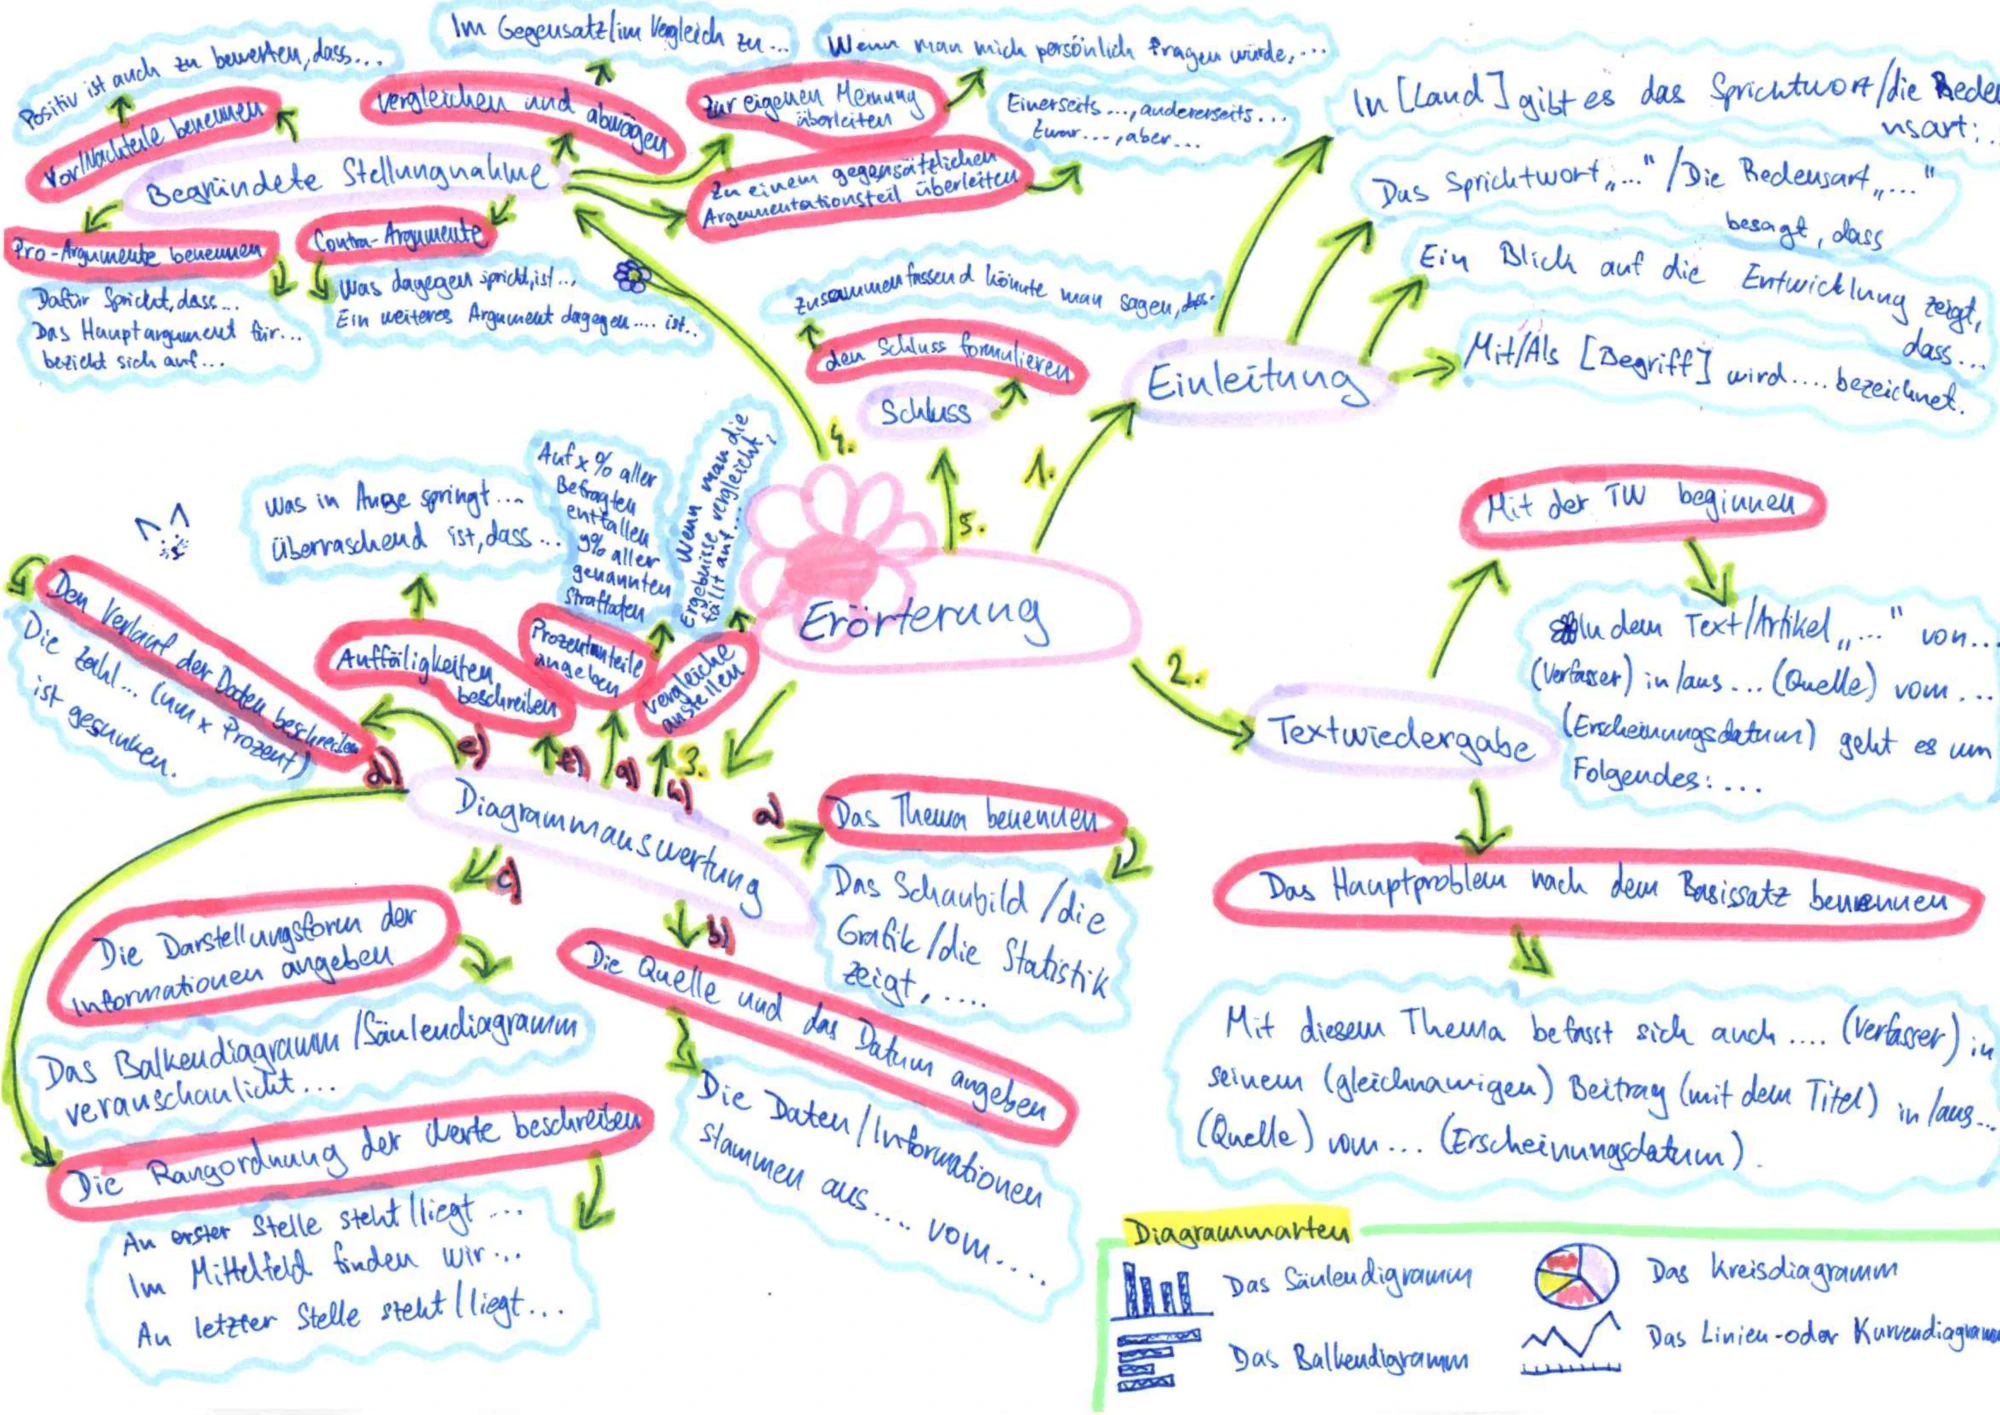 Im Gegensatz/im Vergleich zu...
Positiv ist auch zu bewerten, dass...
Wenn man mich persönlich fragen würde,...
Vor/Nachteile benennen
vergleichen und abwägen
Zur eigenen Meinung
überleiten
Einerseits..., andererseits...
Zwar...., aber...
Begründete Stellungnahme
Zu einem gegensätzlichen
Argumentationsteil überleiten
Pro-Argumente benennen
Contra-Argumente
Dafür spricht, dass...
Das Hauptargument für...
bezieht sich auf...
Was dagegen spricht, ist...,
Ein weiteres Argument dagegen.... ist..
In [Land] gibt es das Sprichtwort/die Rede
nsart:..
Das Sprichtwort „..." /Die Redensart „..."
besagt, dass
Ein Blick auf die Entwicklung zeigt,
dass...
Mit/Als [Begriff] wird.... bezeichnet.
Einleitung
zusammenfassend könnte man sagen, dass.
den Schluss formulieren
Schluss
4.
1.
5.
Erörterung
2.
3.
Mit der TW beginnen
In dem Text/Artikel „..." von...
(Verfasser) in/aus... (Quelle) vom...
(Erscheinungsdatum) geht es um
Folgendes:....
Textwiedergabe
Das Hauptproblem nach dem Basissatz benennen
Mit diesem Thema befasst sich auch.... (Verfasser) in
seinem (gleichnamigen) Beitrag (mit dem Titel) in/aus...
(Quelle) vom... (Erscheinungsdatum).
Was in Auge springt...
überraschend ist, dass...
Auf x% aller
Befragten
entfallen
y% aller
genannten
Straftaten
Wenn man die
Ergebnisse vergleicht,
fällt auf...
Den Verlauf der Daten beschreiben
Die Zahl... (um x Prozent)
ist gesunken.
Auffäligkeiten
beschreiben
Prozentanteile
angeben
Vergleiche
anstellen
d)
e)
f)
g)
h)
Diagrammauswertung
a)
Das Thema benennen
Das Schaubild/die
Grafik/die Statistik
zeigt,....
b)
Die Quelle und das Datum angeben
Die Daten/Informationen
stammen aus.... vom....
c)
Die Darstellungsform der
Informationen angeben
Das Balkendiagramm/Säulendiagramm
veranschaulicht...
Die Rangordnung der Werte beschreiben
An erster Stelle steht/liegt...
Im Mittelfeld finden wir...
An letzter Stelle steht/liegt...
Diagrammarten
Das Säulendigramm
Das Kreisdiagramm
Das Balkendigramm
Das Linien-oder Kurvendiagramm